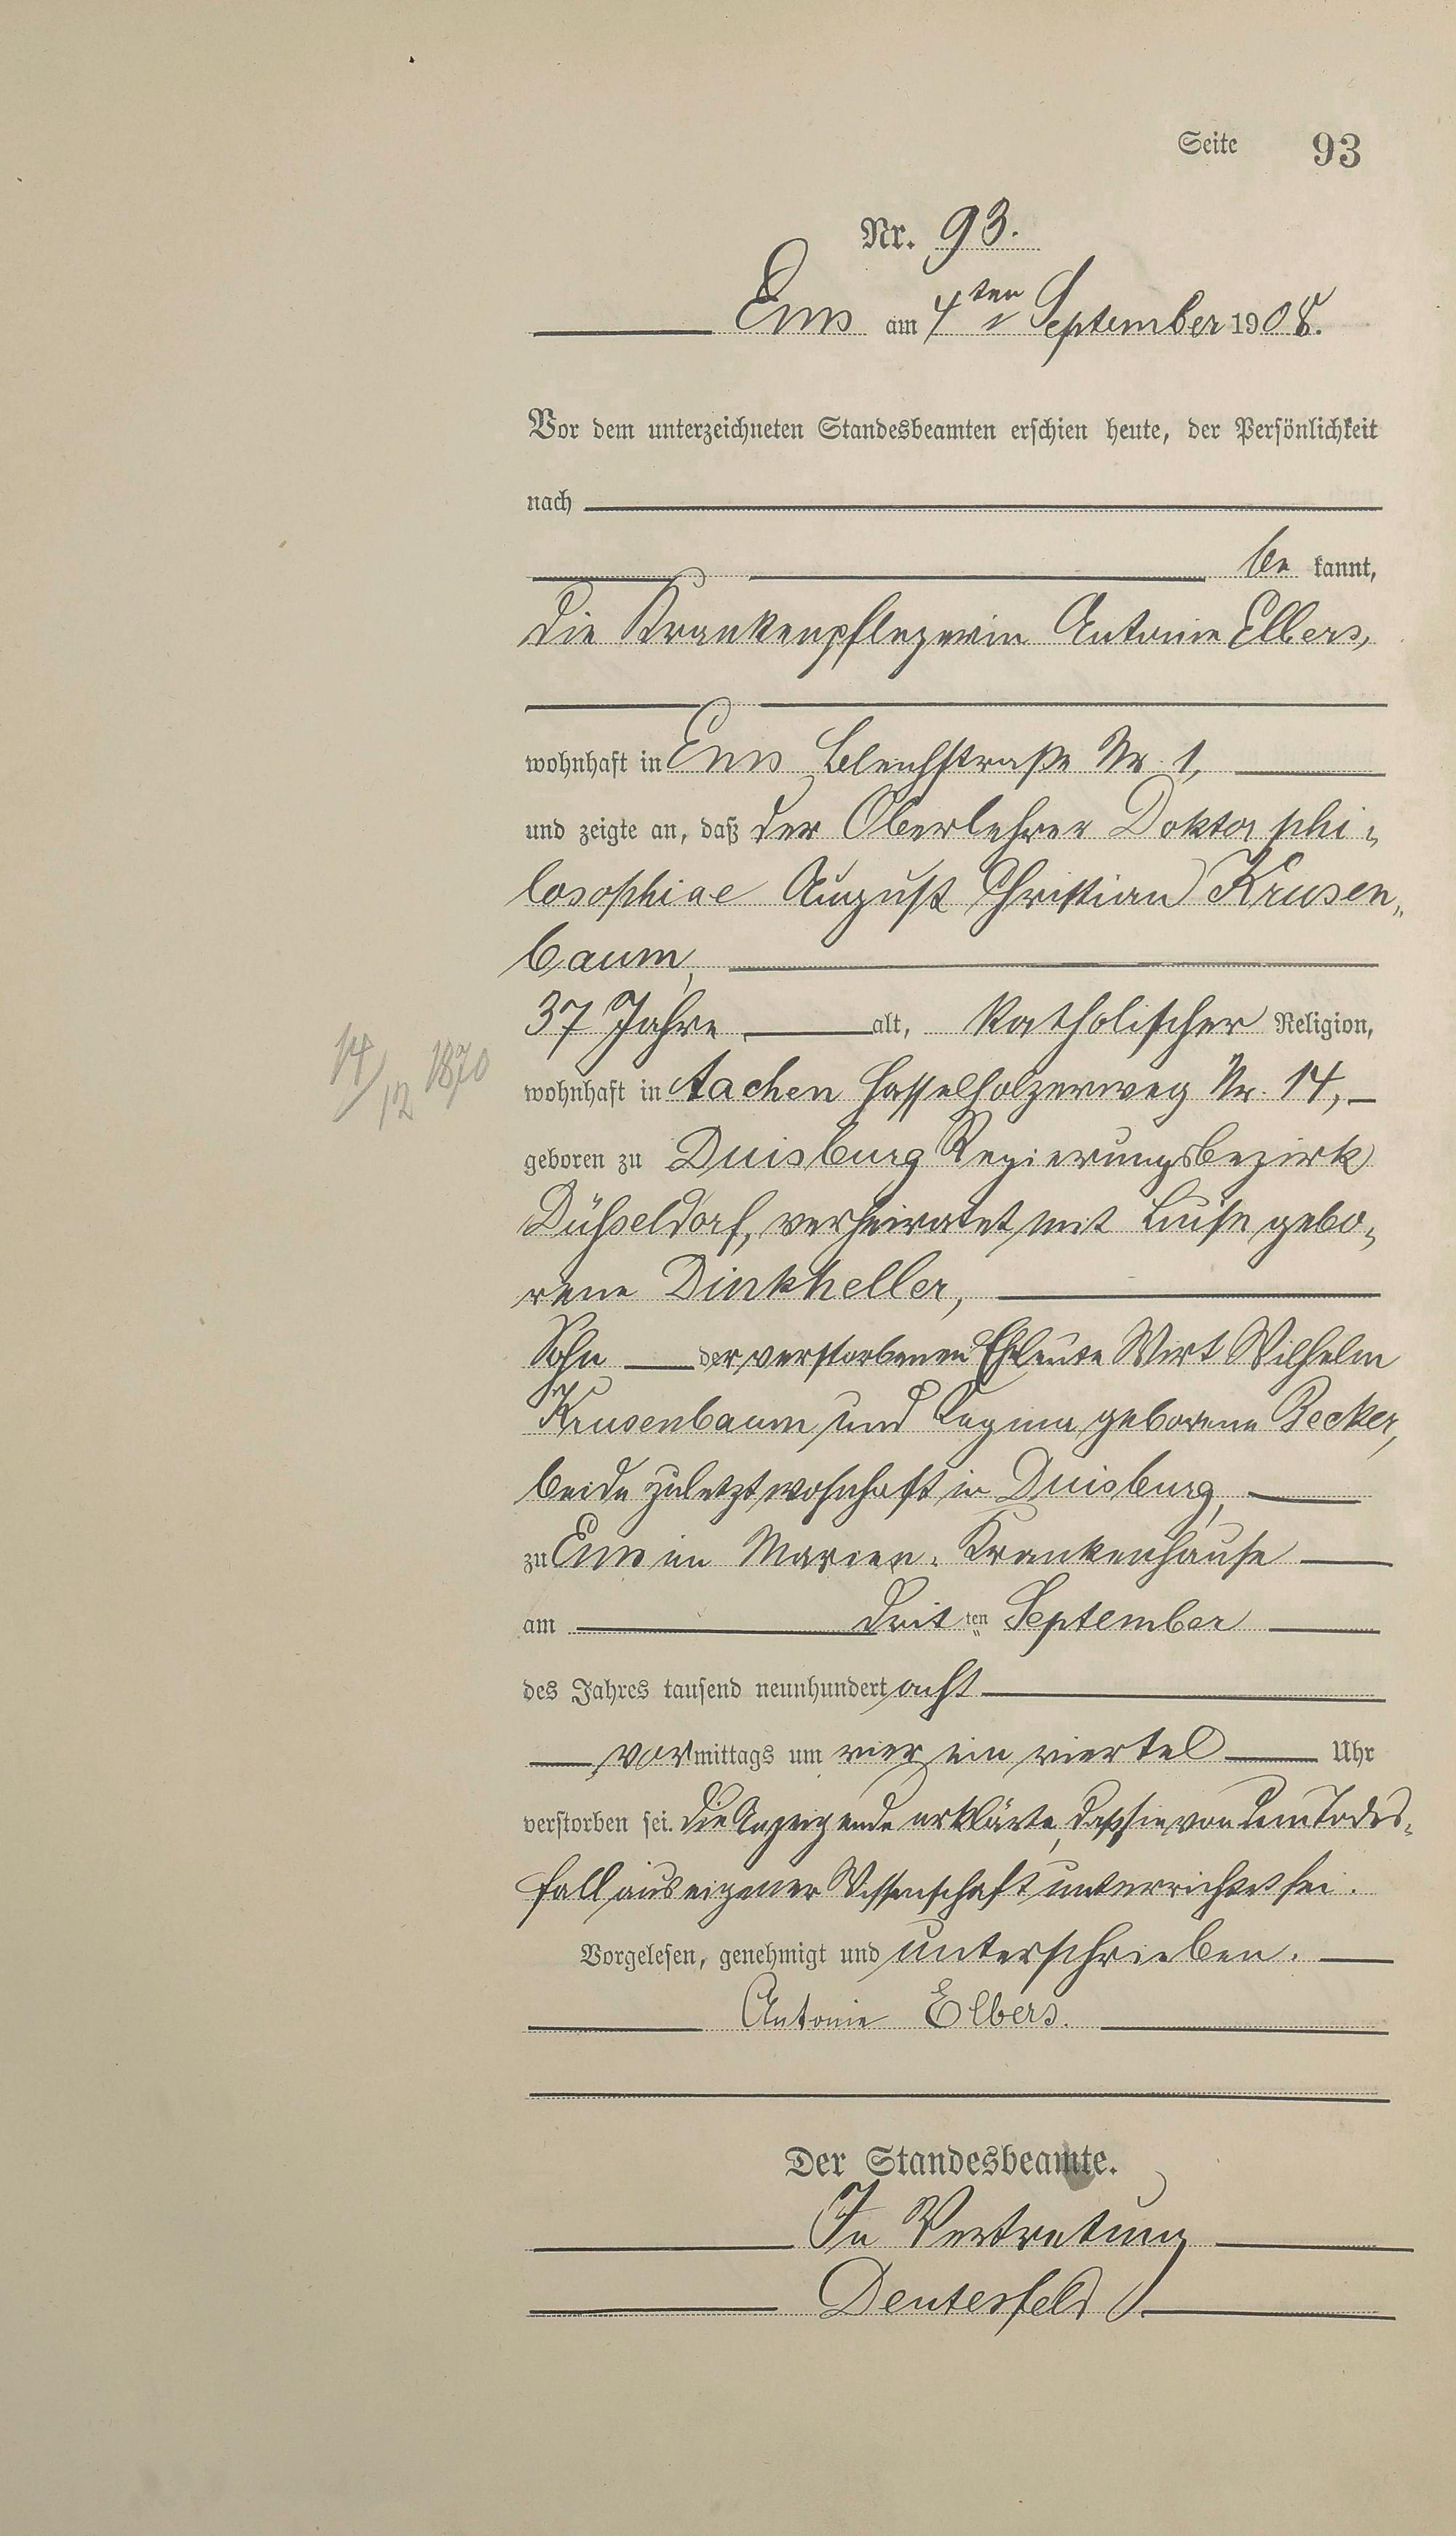 Seite 93
Nr. 93.
Ems am 4ten September 1908.
Vor dem unterzeichneten Standesbeamten erschien heute, der Persönlichkeit
nach
be kannt,
die Krankenpflegerin Antonie Elbers,
wohnhaft in Ems Bleichstraße Nr. 1,
und zeigte an, daß der Oberlehrer Doktor phi-
losophiae August Christian Krusen-
baum,
37 Jahre alt, katholischer Religion,
14/12 1870
wohnhaft in Aachen Hasselholzerweg Nr. 14,
geboren zu Duisburg Regierungsbezirk
Düsseldorf, verheiratet mit Luise gebo-
rene Dinkheller,
Sohn der verstorbenen Eheleute Wirt Wilhelm
Krusenbaum und Regina geborene Becker,
beide zuletzt wohnhaft in Duisburg,
zu Ems im Marien-Krankenhause
am drit ten September
des Jahres tausend neunhundert acht
vor mittags um vier ein viertel Uhr
verstorben sei. Die Anzeigende erklärte, daß sie von dem Todes-
fall aus eigener Wissenschaft unterrichtet sei.
Vorgelesen, genehmigt und unterschrieben.
Antonie Elbers.
Der Standesbeamte.
In Vertretung
Deutesfeld